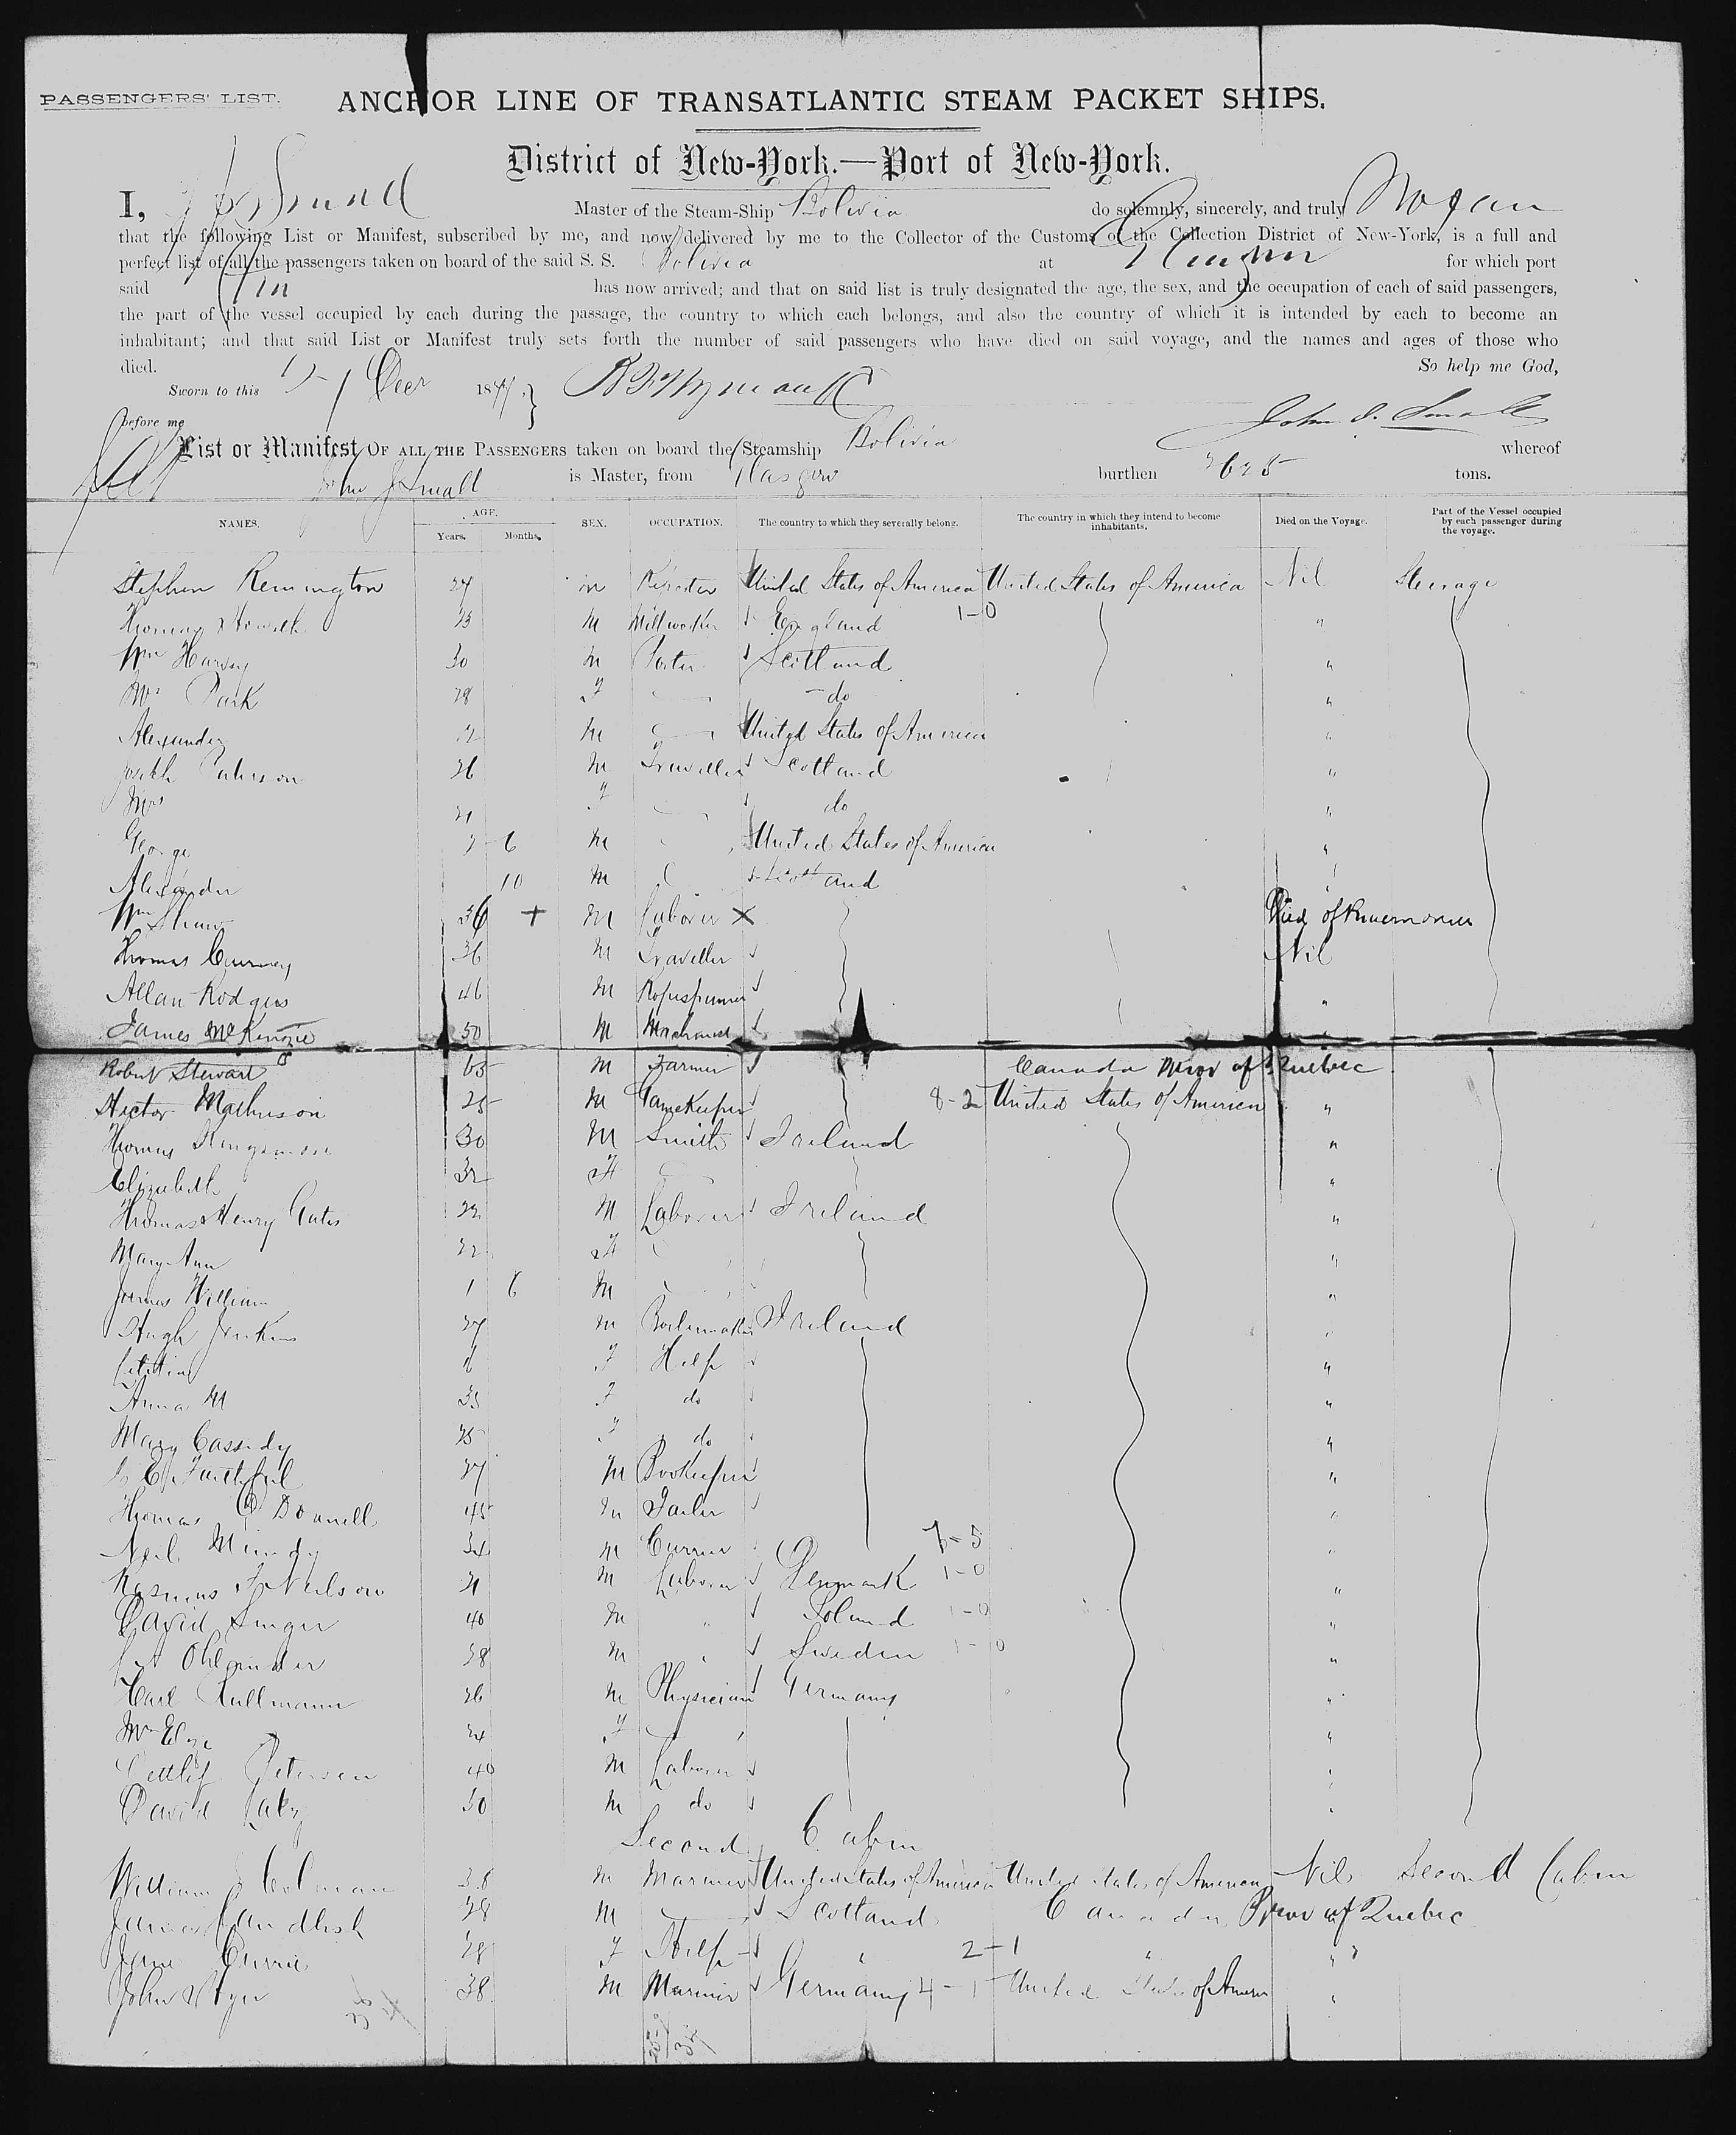 PASSENGERS' LIST.
ANCHOR LINE OF TRANSATLANTIC STEAM PACKET SHIPS.
District of New-York.—Port of New-York.
I, Master of the Steam-Ship Bolivia do solemnly, sincerely, and truly
that the following List or Manifest, subscribed by me, and now delivered by me to the Collector of the Customs of the Collection District of New-York, is a full and
perfect list of all the passengers taken on board of the said S. S. Bolivia at for which port
said has now arrived; and that on said list is truly designated the age, the sex, and the occupation of each of said passengers,
the part of the vessel occupied by each during the passage, the country to which each belongs, and also the country of which it is intended by each to become an
inhabitant; and that said List or Manifest truly sets forth the number of said passengers who have died on said voyage, and the names and ages of those who
died. So help me God,
Sworn to this Decr 187
before me John D. Small
List or Manifest OF ALL THE PASSENGERS taken on board the Steamship Bolivia whereof
John Small is Master, from Glasgow burthen 2625 tons.
NAMES. AGE. Years. Months. SEX. OCCUPATION. The country to which they severally belong. The country in which they intend to become inhabitants. Died on the Voyage. Part of the Vessel occupied by each passenger during the voyage.
Stephen Remington 27 m United States of America United States of America Nil Steerage
Thomas Howell 23 M Millworker England 1-0 "
Wm Harvey 30 M Porter Scotland "
Mrs Park 28 F do "
Alexander M United States of America "
Joseph Paterson 26 M Traveller Scotland "
Mrs 21 F do "
George 2 6 M United States of America "
Alexander 10 M Scotland "
Wm Shaw 36 + M Laborer X Died of Pneumonia
Thomas 36 M Traveller Nil
Allan Rodgers 46 M Ropespinner "
James McKenzie 50 M Merchant "
Robert Stewart 65 M Farmer Canada Prov of Quebec
Hector Matheson 25 M Gamekeeper 8-2 United States of America "
Thomas 30 M Smith Ireland "
Elizabeth 32 F "
Thomas Henry Gates 22 M Laborer Ireland "
Mary Ann 22 F "
James William 1 6 M "
Hugh Jenkins 27 M Boilermaker Ireland "
Letitia F Help "
Anna M 33 F do "
Mary Cassidy 25 F do "
E. Faithful 27 M Bookeeper "
Thomas O Donnell 45 M Tailor "
Neil 34 M Currier 7-5 "
Rasmus F Neilson 21 M Laborer Denmark 1-0 "
David Singer 40 M " Poland 1-0 "
Ohlander 28 M " Sweden 1-0 "
Carl Kullmann 26 M Physician Germany "
Mrs Elge 24 F "
Dettlif Petersen 40 M Laborer "
David 30 M do "
Second Cabin
William Colman 38 M Mariner United States of America United States of America Nil Second Cabin
James Candlish 28 M Scotland Canada Prov of Quebec
Jane Currie 28 F Help " 2-1 " "
John 38 M Mariner Germany 4-1 United States of America "